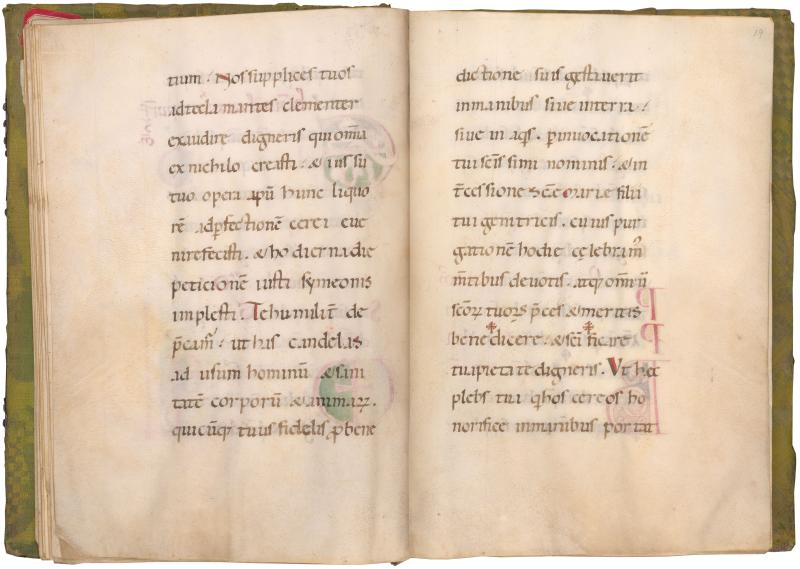 tium. Nos supplices tuos
adte clamantes clementer
exaudire digneris qui om̄ia
ex nichilo creasti. & iussu
tuo opera apū hunc liquo
rē adp̄fectionē cerei eue
nire fecisti. & hodierna die
peticionē iusti symeonis
implesti. Te humilit̄ de
p̄camˀ. ut has candelas
ad usum hominū & sani
tatē corporū & animaꝝ.
quicūqꝫ tuus fidelis p̱ bene
19
dictione suis gestauerit
inmanibus siue interra.
siue in aq̄s. p̱inuocationē
tui sc̄issimi nominis. & in
t̄cessione sc̄e marie filii
tui genitricis. cuius pur
gationē hodie cęlebram̄ˀ
m̄tibus deuotis. atqꝫ om̄iū
sc̄oꝝ tuoꝝ p̄ces & meritis
bene✠dicere. & sc̄i✠ficare
tua pietate digneris. Vt hec
plebs tui q̄ hos cereos ho
norifice inmanibus portat